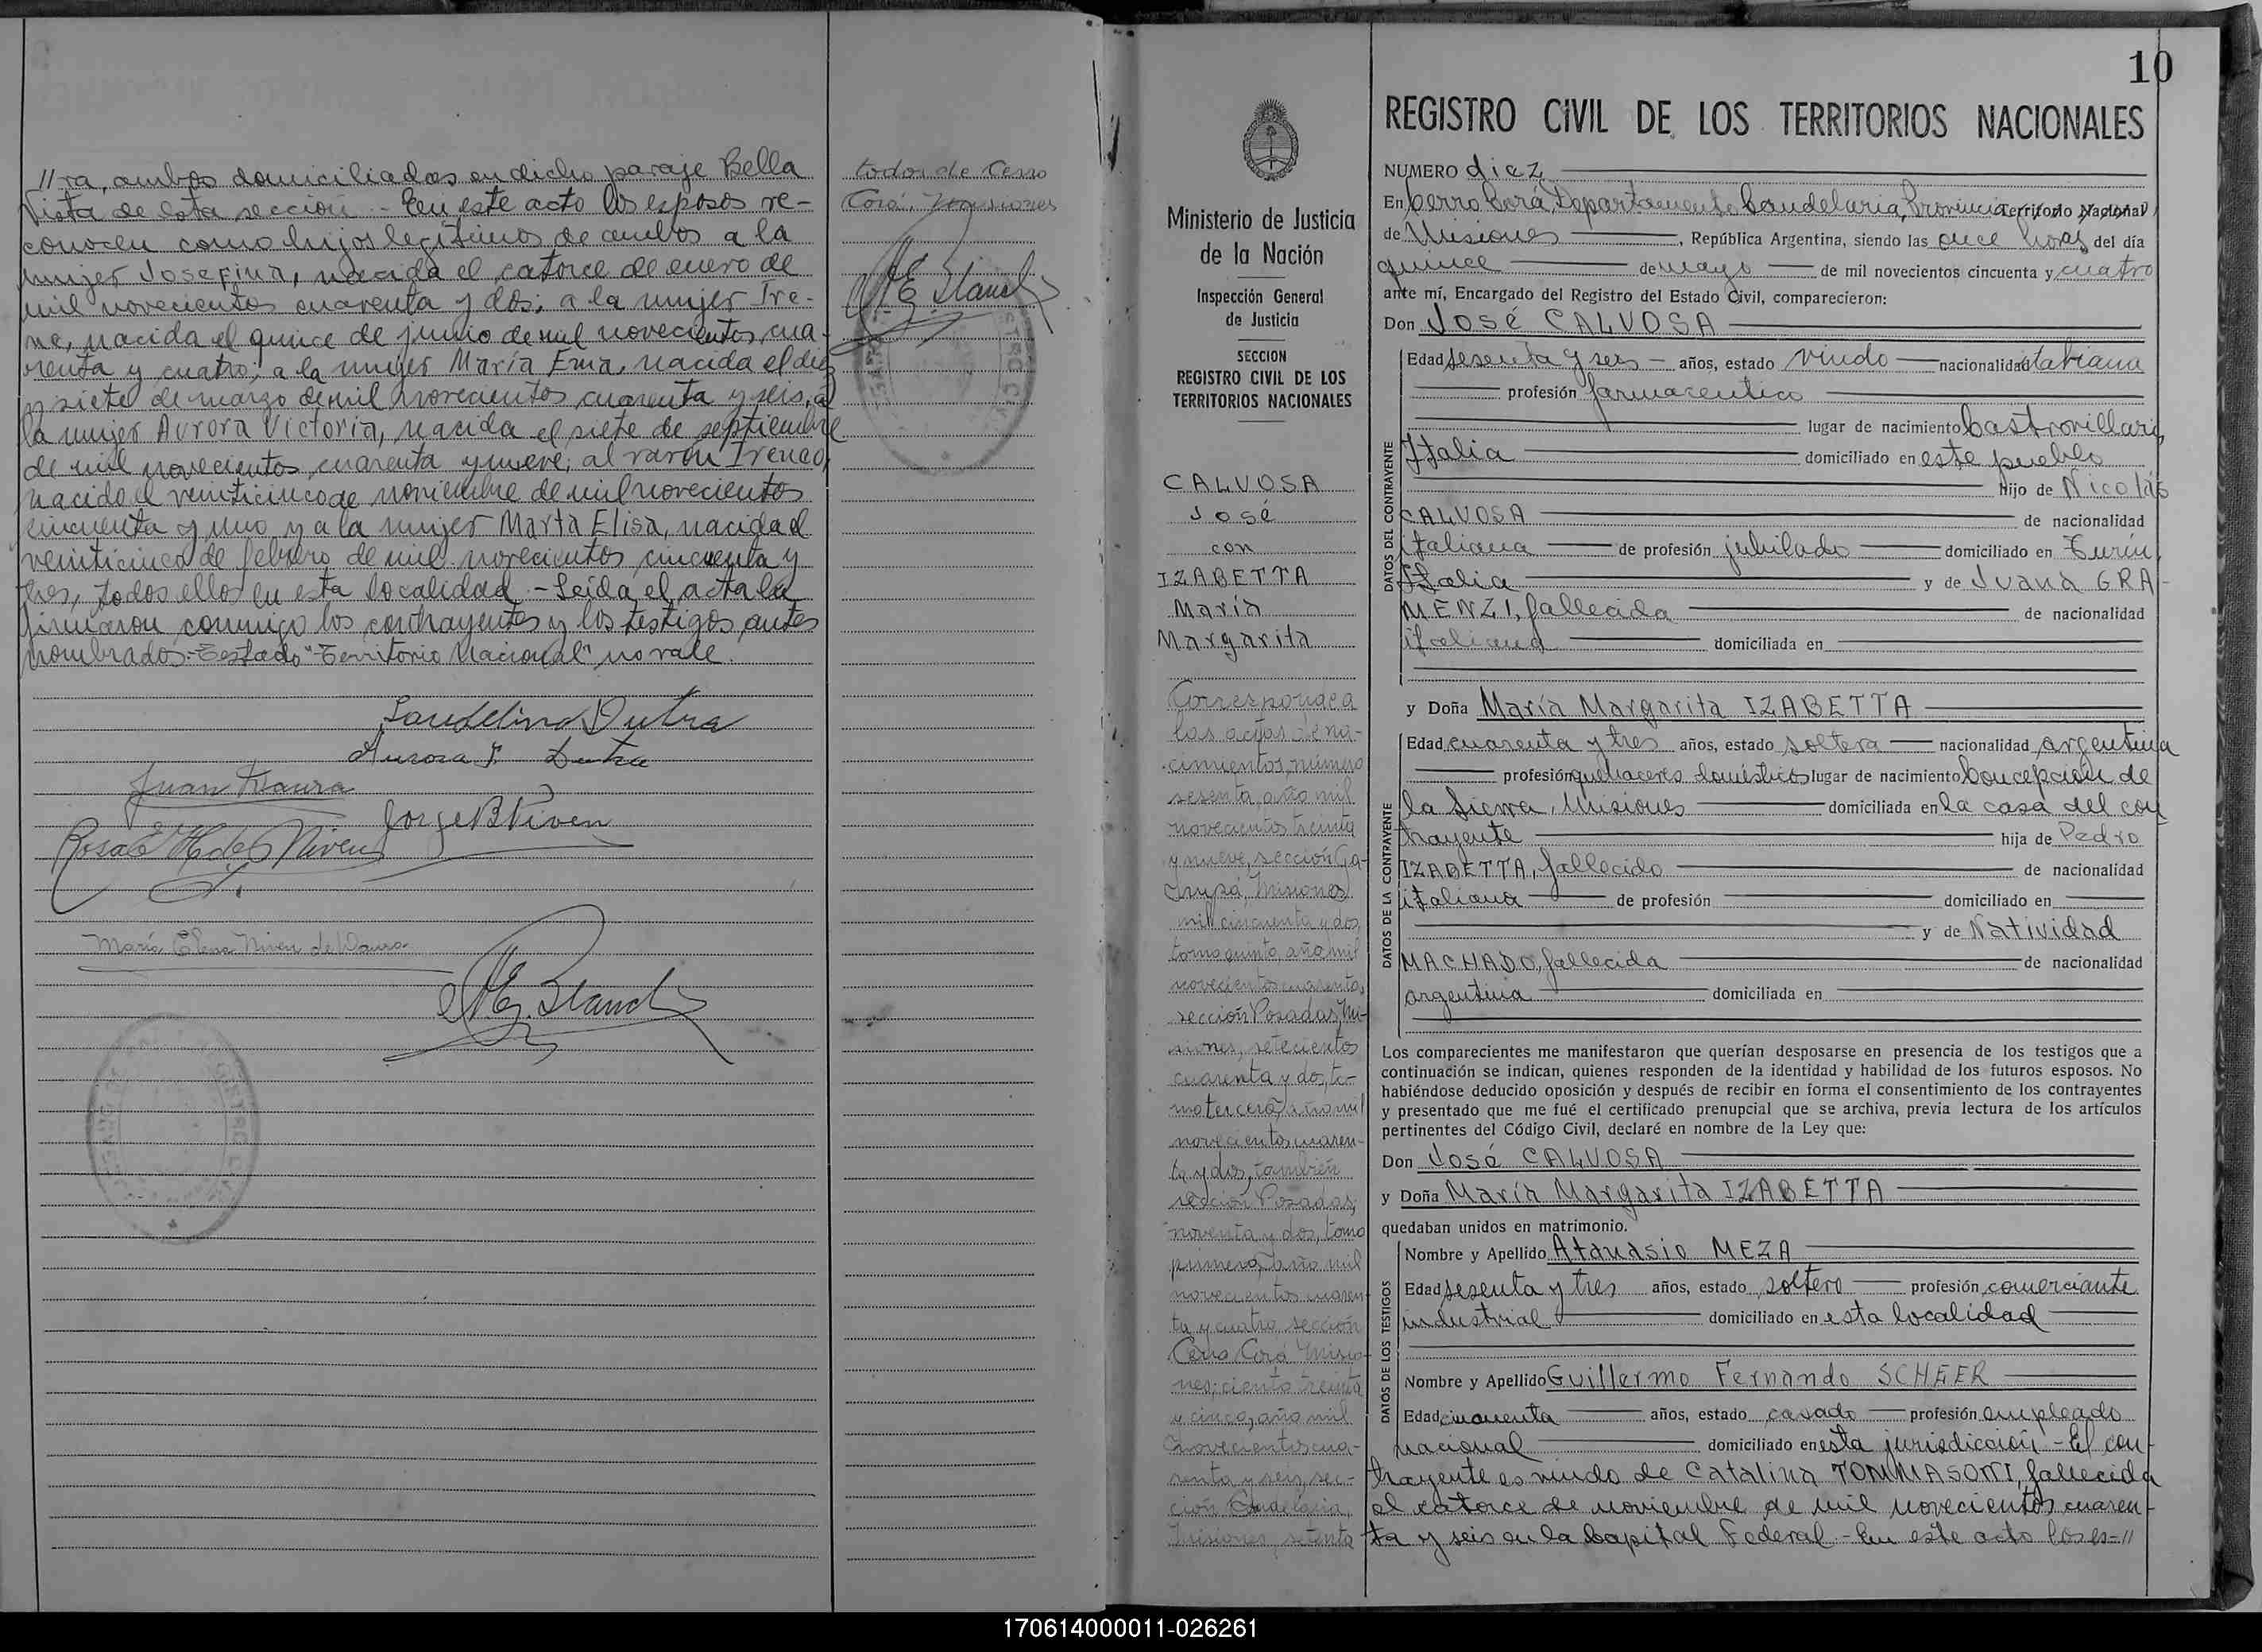 //ra, ambos domiciliados en dicho paraje Bella
Vista de esta sección.- En este acto los esposos re-
conocen como hijos legítimos de ambos a la
mujer Josefina, nacida el catorce de enero de
mil novecientos cuarenta y dos; a la mujer Ire-
ne, nacida el quince de junio de mil novecientos cua-
renta y cuatro; a la mujer María Ema, nacida el diez
y siete de marzo de mil novecientos cuarenta y seis, a
la mujer Aurora Victoria, nacida el siete de septiembre
de mil novecientos cuarenta y nueve; al varón Ireneo,
nacido el veinticinco de noviembre de mil novecientos
cincuenta y uno y a la mujer Marta Elisa, nacida el
veinticinco de febrero de mil novecientos cincuenta y
tres, todos ellos en esta localidad.- Leída el acta la
firmaron conmigo los contrayentes y los testigos antes
nombrados.- Testado "Territorio Nacional" no vale.
Laudelino Dutra
Aurora F. Dutra
Juan Maura
Jorge B Niven
Rosa E H de Niven
María Elena Niven de Maura
todos de Cerro
Corá, Misiones
10
Ministerio de Justicia
de la Nación
Inspección General
de Justicia
SECCION
REGISTRO CIVIL DE LOS
TERRITORIOS NACIONALES
CALVOSA
José
con
IZABETTA
María
Margarita
Corresponde a
las actas de na-
cimientos número
sesenta, año mil
novecientos treinta
y nueve, sección Ga-
rupá, Misiones;
mil cincuenta y dos,
tomo quinto, año mil
novecientos cuarenta,
sección Posadas, Mi-
siones; setecientos
cuarenta y dos, to-
mo tercero, año mil
novecientos cuaren-
ta y dos, también
sección Posadas;
noventa y dos, tomo
primero, año mil
novecientos cuaren-
ta y cuatro, sección
Cerro Corá, Misio-
nes; ciento treinta
y cinco, año mil
novecientos cua-
renta y seis, sec-
ción Candelaria,
Misiones, setenta
REGISTRO CIVIL DE LOS TERRITORIOS NACIONALES
NUMERO diez
En Cerro Corá, Departamento Candelaria, Provincia Territorio Nacional
de Misiones, República Argentina, siendo las once horas del día
quince de mayo de mil novecientos cincuenta y cuatro
ante mí, Encargado del Registro del Estado Civil, comparecieron:
Don José CALVOSA
DATOS DEL CONTRAYENTE
Edad sesenta y seis años, estado viudo nacionalidad italiana
profesión farmaceutico
lugar de nacimiento Castrovillari,
Italia domiciliado en este pueblo
hijo de Nicolás
CALVOSA de nacionalidad
italiana de profesión jubilado domiciliado en Turín,
Italia y de Juana GRA-
MENZI, fallecida de nacionalidad
italiana domiciliada en
y Doña María Margarita IZABETTA
DATOS DE LA CONTRAYENTE
Edad cuarenta y tres años, estado soltera nacionalidad argentina
profesión quehaceres domésticos lugar de nacimiento Concepción de
la Sierra, Misiones domiciliada en la casa del con
trayente hija de Pedro
IZABETTA, fallecido de nacionalidad
italiana de profesión domiciliado en
y de Natividad
MACHADO, fallecida de nacionalidad
argentina domiciliada en
Los comparecientes me manifestaron que querían desposarse en presencia de los testigos que a
continuación se indican, quienes responden de la identidad y habilidad de los futuros esposos. No
habiéndose deducido oposición y después de recibir en forma el consentimiento de los contrayentes
y presentado que me fué el certificado prenupcial que se archiva, previa lectura de los artículos
pertinentes del Código Civil, declaré en nombre de la Ley que:
Don José CALVOSA
y Doña María Margarita IZABETTA
quedaban unidos en matrimonio.
DATOS DE LOS TESTIGOS
Nombre y Apellido Atanasio MEZA
Edad sesenta y tres años, estado soltero profesión comerciante
industrial domiciliado en esta localidad
Nombre y Apellido Guillermo Fernando SCHEER
Edad cincuenta años, estado casado profesión empleado
nacional domiciliado en esta jurisdicción - El con-
trayente es viudo de Catalina TOMMASONI, fallecida
el catorce de noviembre de mil novecientos cuaren-
ta y seis en la Capital Federal.- En este acto los es-//
170614000011-026261